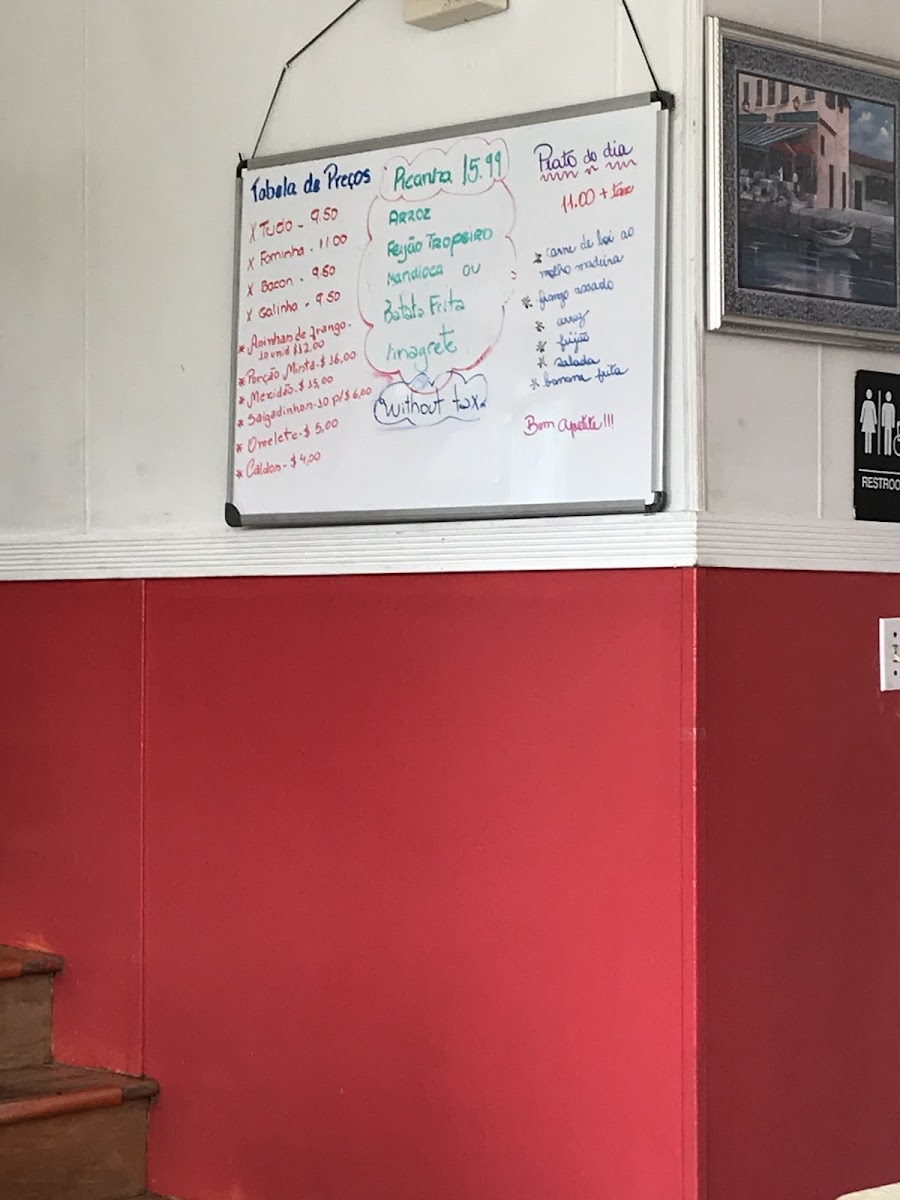 Tabela de Preços
X Tudo - 9.50
X Fominha - 11.00
X Bacon - 9.50
X Galinha - 9.50
* Asinhas de frango -
10 unid $12,00
* Porção Mista - $ 16,00
* Mexidão - $ 15,00
* Salgadinhos - 10 p/ $ 6,00
* Omelete - $ 5,00
* Caldos - $ 4,00
Picanha 15.99
Arroz
Feijão Tropeiro
Mandioca ou
Batata Frita
Vinagrete
Without tax
Prato do dia
11.00 + tax
* carne de boi ao
molho madeira
* frango assado
* arroz
* feijão
* salada
* banana frita
Bom Apetite!!!
RESTROO